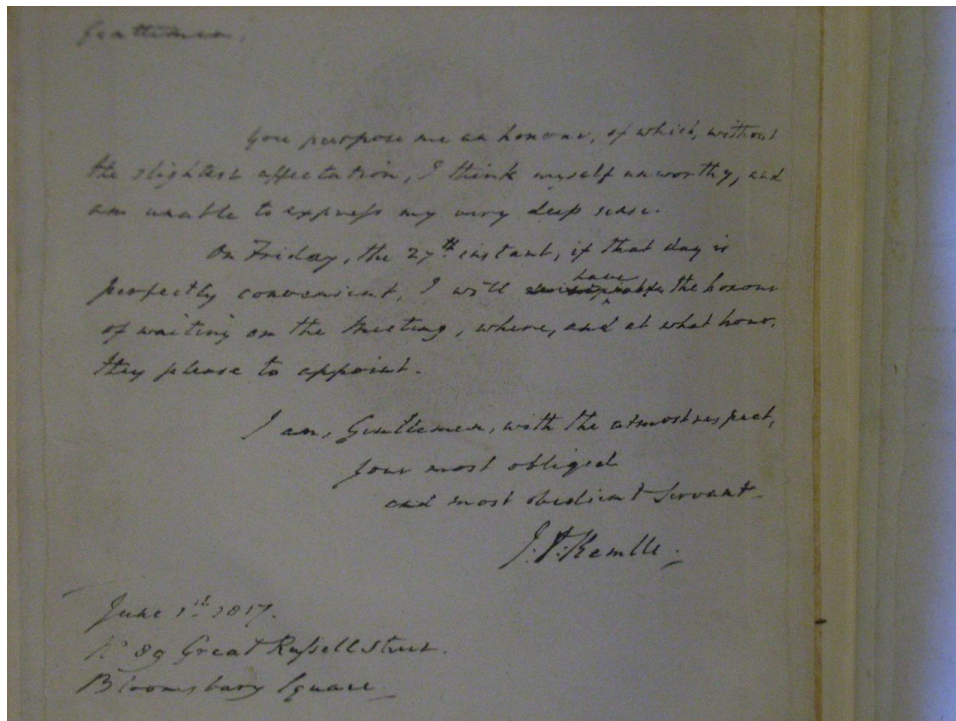 Gentlemen,
You purpose me an honour, of which, without
the slightest affectation, I think myself unworthy, and
am unable to express my very deep sense.
On Friday, the 27th instant, if that day is
perfectly convenient, I will have the honour
of waiting on the Meeting, where, and at what hour,
they please to appoint.
I am, Gentlemen, with the utmost respect,
your most obliged
and most obedient Servant
J. P. Kemble.
June 1st 1817.
No 89 Great Russell Street.
Bloomsbury Square